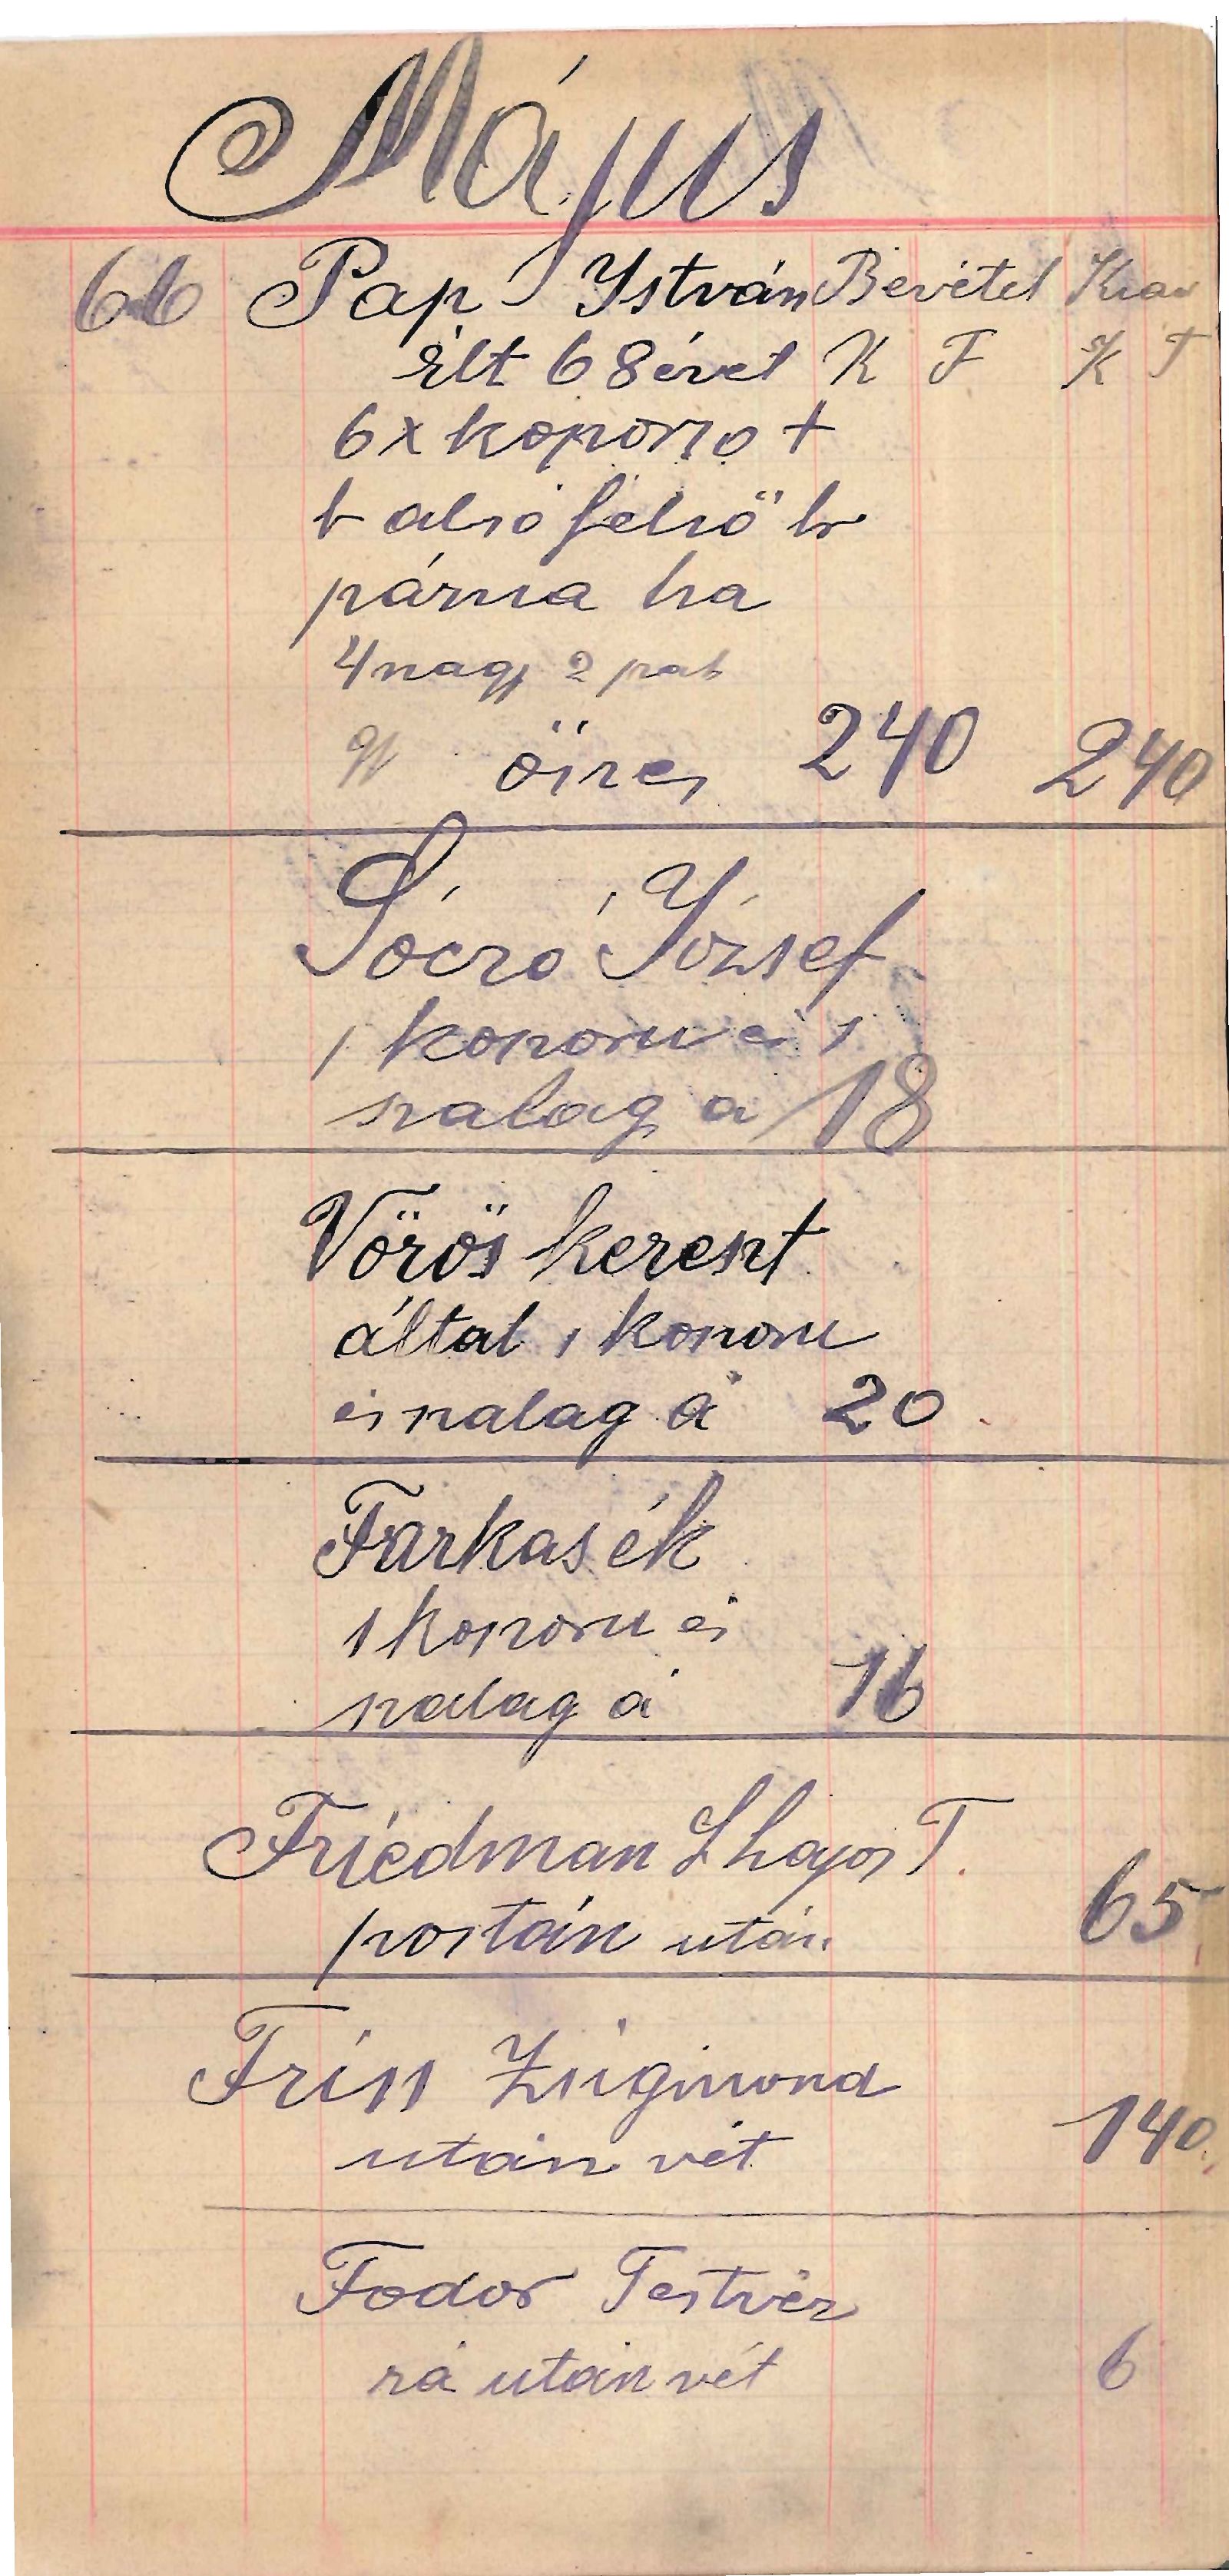 Május
66 Pap István Bevétel Kiav
élt 68 évet K F K F
6 x koporso +
b alsó felső br
párna ha
4 nagy 2 pat
össes 240 240
Sóczó József
1 koporsu és 1
szalag a 18
Vörös kereszt
által 1 koporsu
és szalag á 20
Farkas ék
1 koporsu és
szalag á 16
Friedman L Lajos T.
postán után 65
Friss Zsigmond
után vét 140
Fodor Testvér
rá után vét 6